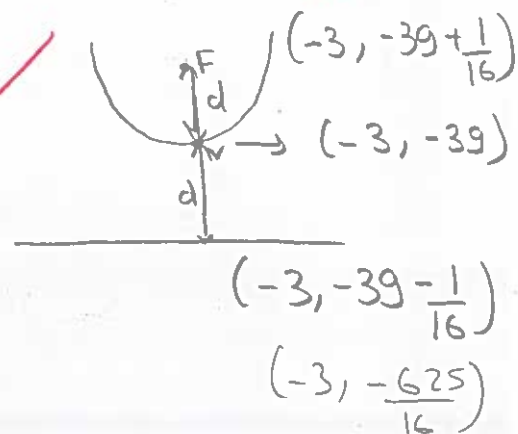 F (-3, -39+1/16)
d
v → (-3, -39)
d
(-3, -39-1/16)
(-3, -625/16)